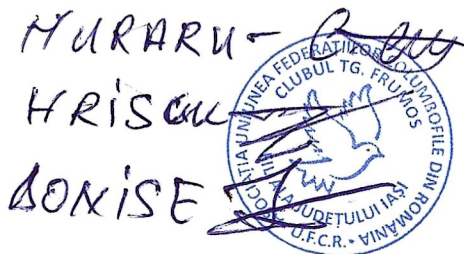 MURARU-
HRISCU
DONISE
ASOCIAȚIA UNIUNEA FEDERAȚIILOR COLUMBOFILE DIN ROMÂNIA
CLUBUL TG. FRUMOS
FILIALA JUDEȚULUI IAȘI
U.F.C.R.